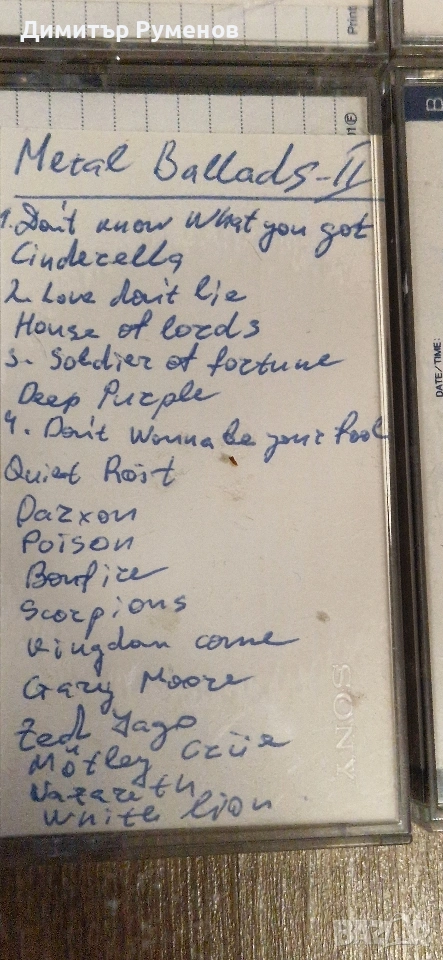 Димитър Руменов
Print
Metal Ballads-II
1. Don't know What you got
Cinderella
2. Love don't lie
House of lords
3. Soldier of fortune
Deep Purple
4. Don't wonna be your fool
Quiet Rōit
Darxon
Poison
Bonfire
Scorpions
Kingdom come
Gary Moore
Zed Yago
Mötley Crüe
Nazareth
White lion
SONY
B
DATE/TIME: